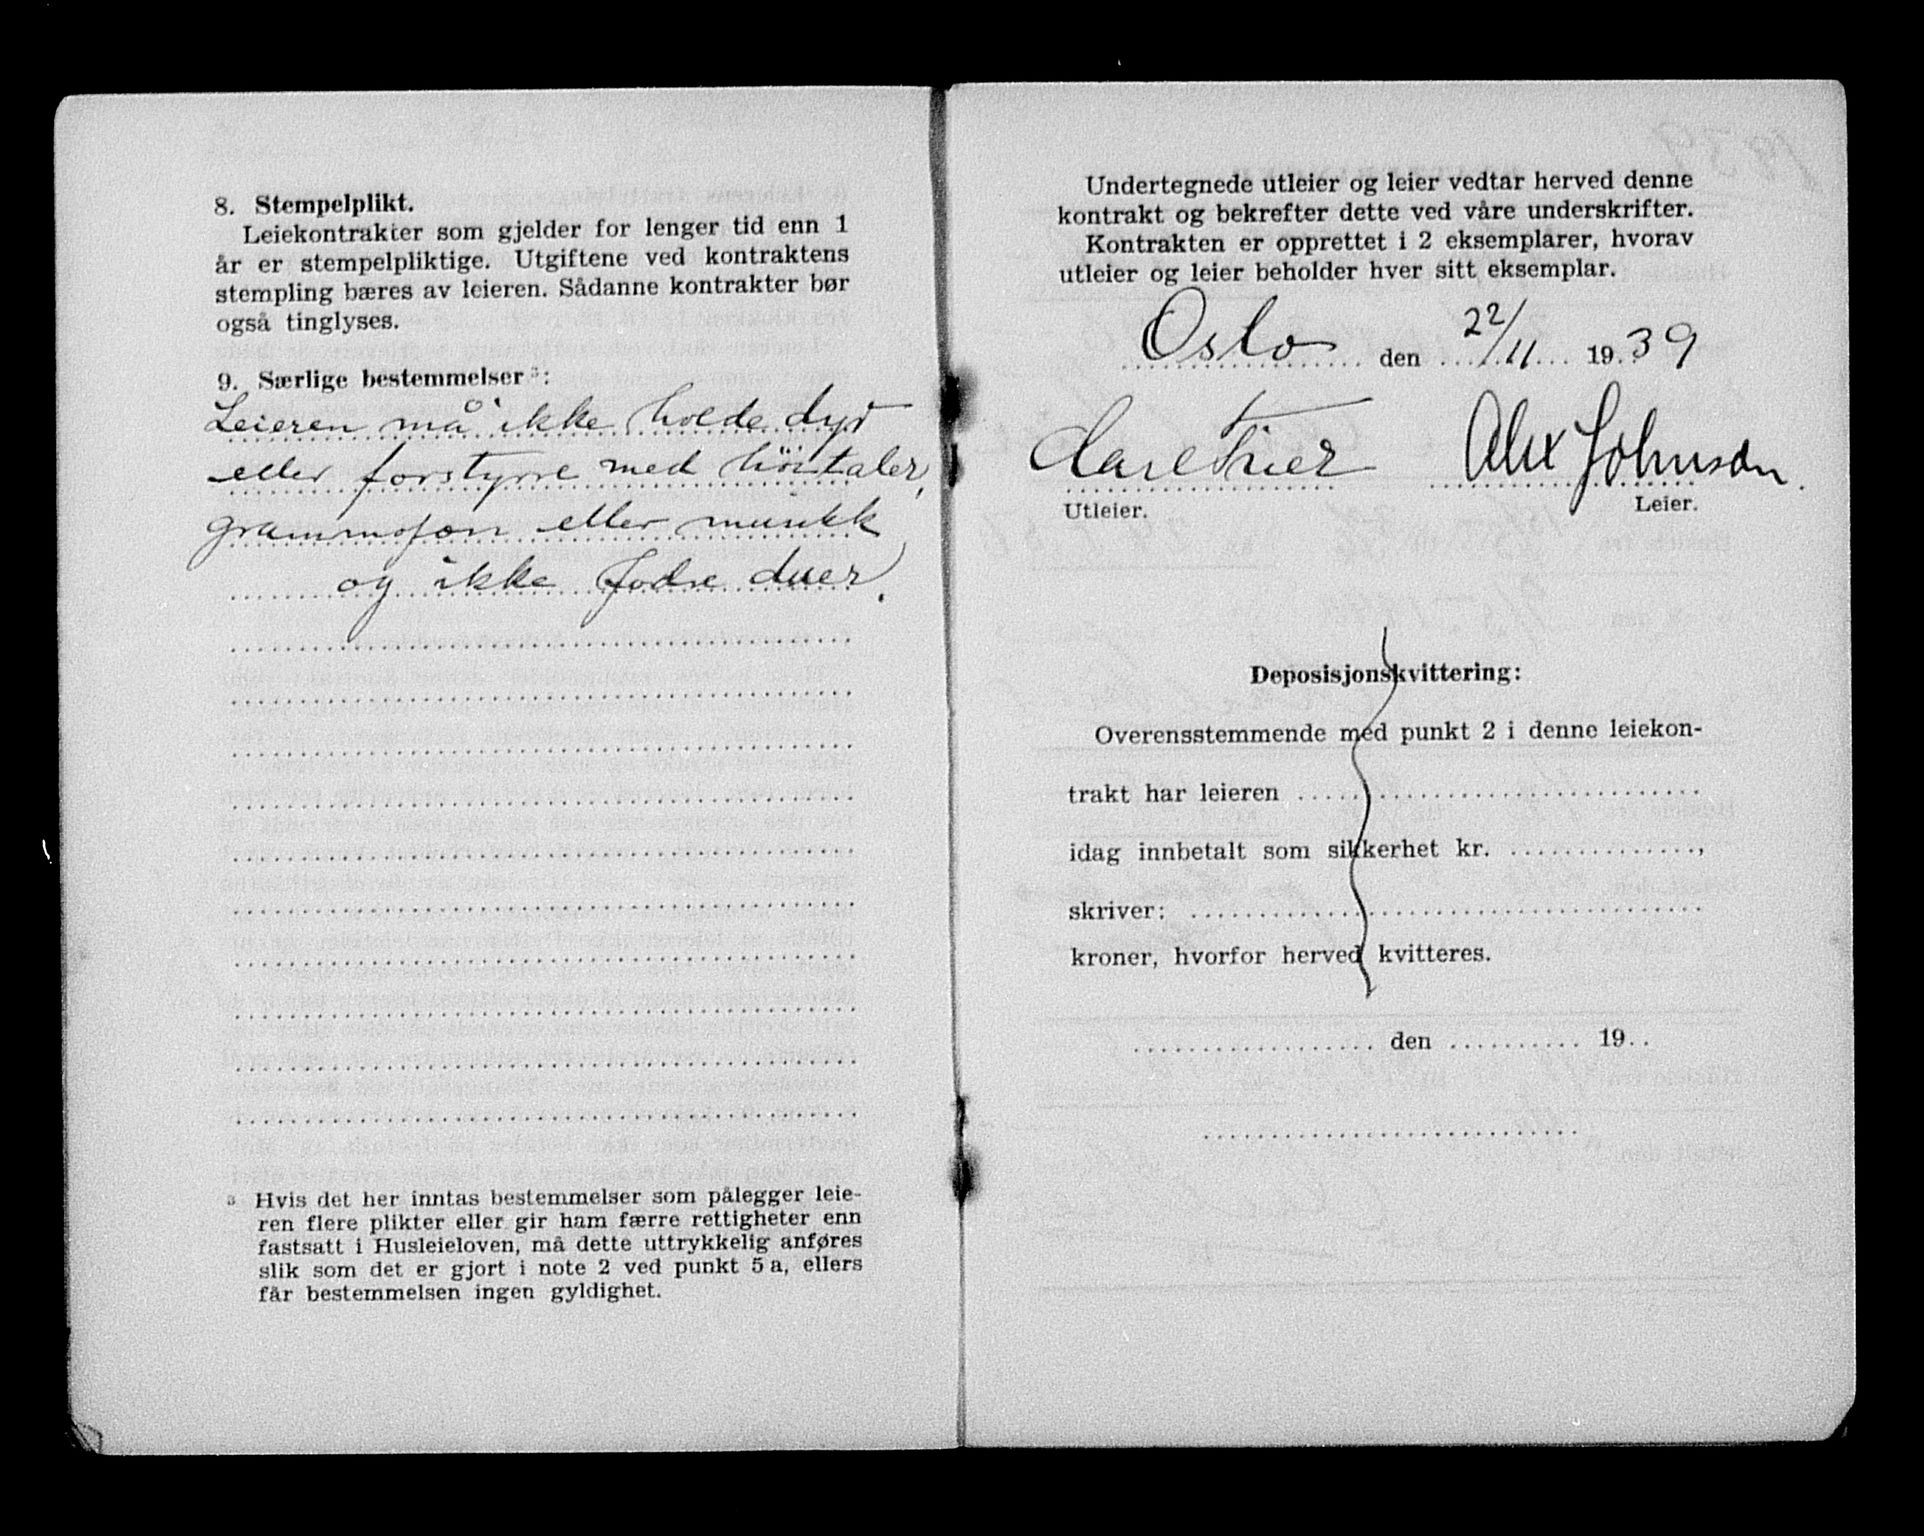 8. Stempelplikt.
Leiekontrakter som gjelder for lenger tid enn 1
år er stempelpliktige. Utgiftene ved kontraktens
stempling bæres av leieren. Sådanne kontrakter bør
også tinglyses.
9. Særlige bestemmelser ³:
Leieren må ikke holde dyr
eller forstyrre med höitaler,
grammofon eller musikk
og ikke fodre duer.
³ Hvis det her inntas bestemmelser som pålegger leie-
ren flere plikter eller gir ham færre rettigheter enn
fastsatt i Husleieloven, må dette uttrykkelig anføres
slik som det er gjort i note 2 ved punkt 5 a, ellers
får bestemmelsen ingen gyldighet.
Undertegnede utleier og leier vedtar herved denne
kontrakt og bekrefter dette ved våre underskrifter.
Kontrakten er opprettet i 2 eksemplarer, hvorav
utleier og leier beholder hver sitt eksemplar.
Oslo den 22/11 1939
Alex Johnson
Utleier. Leier.
Deposisjonskvittering:
Overensstemmende med punkt 2 i denne leiekon-
trakt har leieren
idag innbetalt som sikkerhet kr. ,
skriver:
kroner, hvorfor herved kvitteres.
den 19